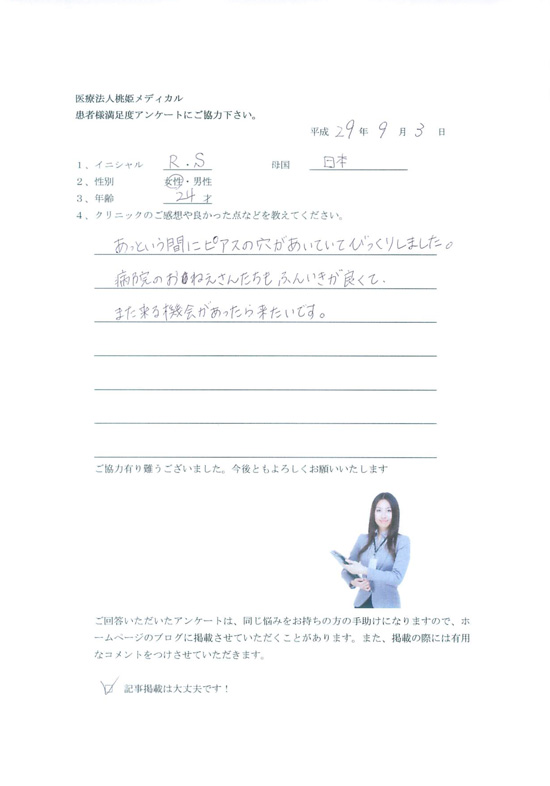 医療法人桃姫メディカル
患者様満足度アンケートにご協力下さい。
平成 29 年 9 月 3 日
1、イニシャル R.S 母国 日本
2、性別 女性・男性
3、年齢 24 才
4、クリニックのご感想や良かった点などを教えてください。
あっという間にピアスの穴があいていてびっくりしました。
病院のおねえさんたちも ふんいきが良くて、
また来る機会があったら来たいです。
ご協力有り難うございました。今後ともよろしくお願いいたします
ご回答いただいたアンケートは、同じ悩みをお持ちの方の手助けになりますので、ホ
ームページのブログに掲載させていただくことがあります。また、掲載の際には有用
なコメントをつけさせていただきます。
記事掲載は大丈夫です！